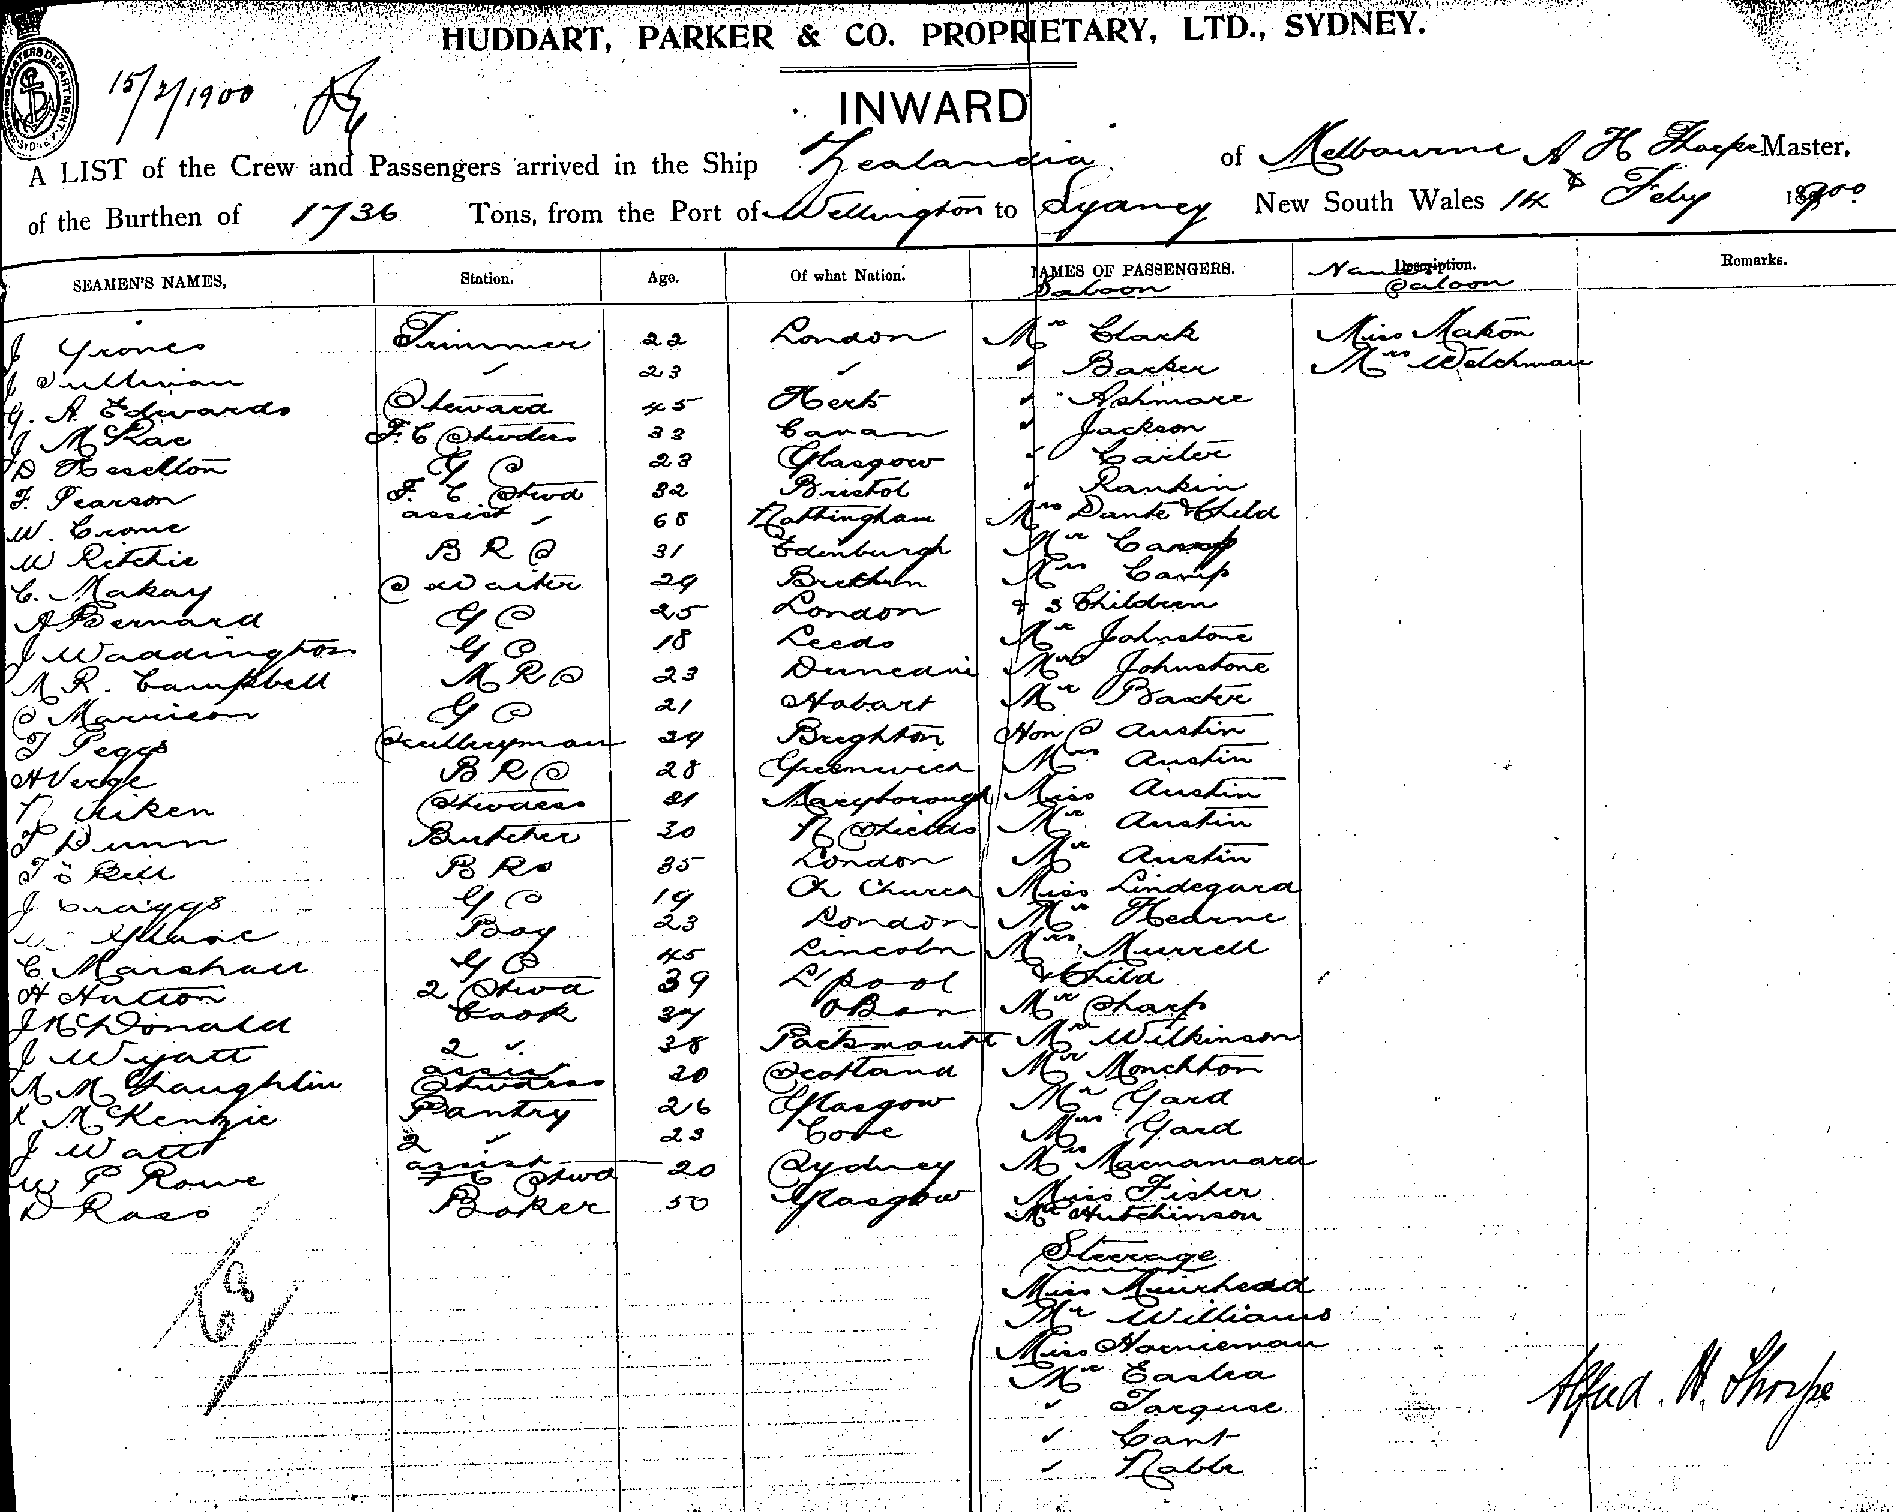 HUDDART, PARKER & CO. PROPRIETARY, LTD., SYDNEY.
15/2/1900
INWARD
A LIST of the Crew and Passengers arrived in the Ship Zealandia of Melbourne A H Thorpe Master,
of the Burthen of 1736 Tons, from the Port of Wellington to Sydney New South Wales 14th Feby 1900
SEAMEN'S NAMES, Station. Age. Of what Nation. NAMES OF PASSENGERS. Description. Remarks.
Saloon Names Saloon
J Grones Trimmer 22 London Mr Clark Miss Makon
J Sullivan " 23 " " Barker Mrs Welchman
G. A Edwards Steward 45 Herts " Ashmore
J McRae F. C Stwdess 33 Canan " Jackson
D Heselton G S 23 Glasgow " Carter
F. Pearson F. C Stwd 32 Bristol " Rankin
W. Crome assist " 68 Nottingham Mrs Dante & Child
W Ritchie B R S 31 Edinburgh Mr Camp
C. Makay S Waiter 29 Brethin Mrs Camp
A Bernard G S 25 London & 3 Children
J Waddington G S 18 Leeds Mr Johnstone
M R. Campbell M R S 23 Dunedin Mrs Johnstone
S Marrison G S 21 Hobart Mr Baxter
T Peggs Sculleryman 29 Brighton Hon S Austin
H Verge B R S 28 Greenwich Mrs Austin
N Aiken Stwdess 31 Maryborough Miss Austin
T Dunn Butcher 30 N Shields Mr Austin
T S Rell B R S 35 London Mr Austin
J Craggs G S 19 Ch Church Miss Lindegard
Boy 23 London Mr Hearne
C Marshall G S 45 Lincoln Mrs Murrell
H Hutton 2 Stwd 39 L'pool & Child
J McDonald Cook 37 OBan Mr Sharp
J Wyatt 2 " 38 Portsmouth Mr Wilkinson
M McLaughlin assist Stwdess 30 Scotland Mr Monckton
K McKenzie Pantry 26 Glasgow Mr Gard
J Watt 2 " 23 Cove Mrs Gard
W P Rowe assist F C Stwd 20 Sydney Mrs Macnamara
D Ross Baker 50 Glasgow Miss Fisher
Mr Hutchinson
Steerage
Miss Muirhead
Mr Williams
Miss Hornieman
Mr Eastea
" Torguse
" Cant
" Nabbe
Alfred. H. Thorpe